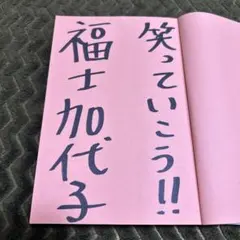 笑っていこう!!
福士加代子